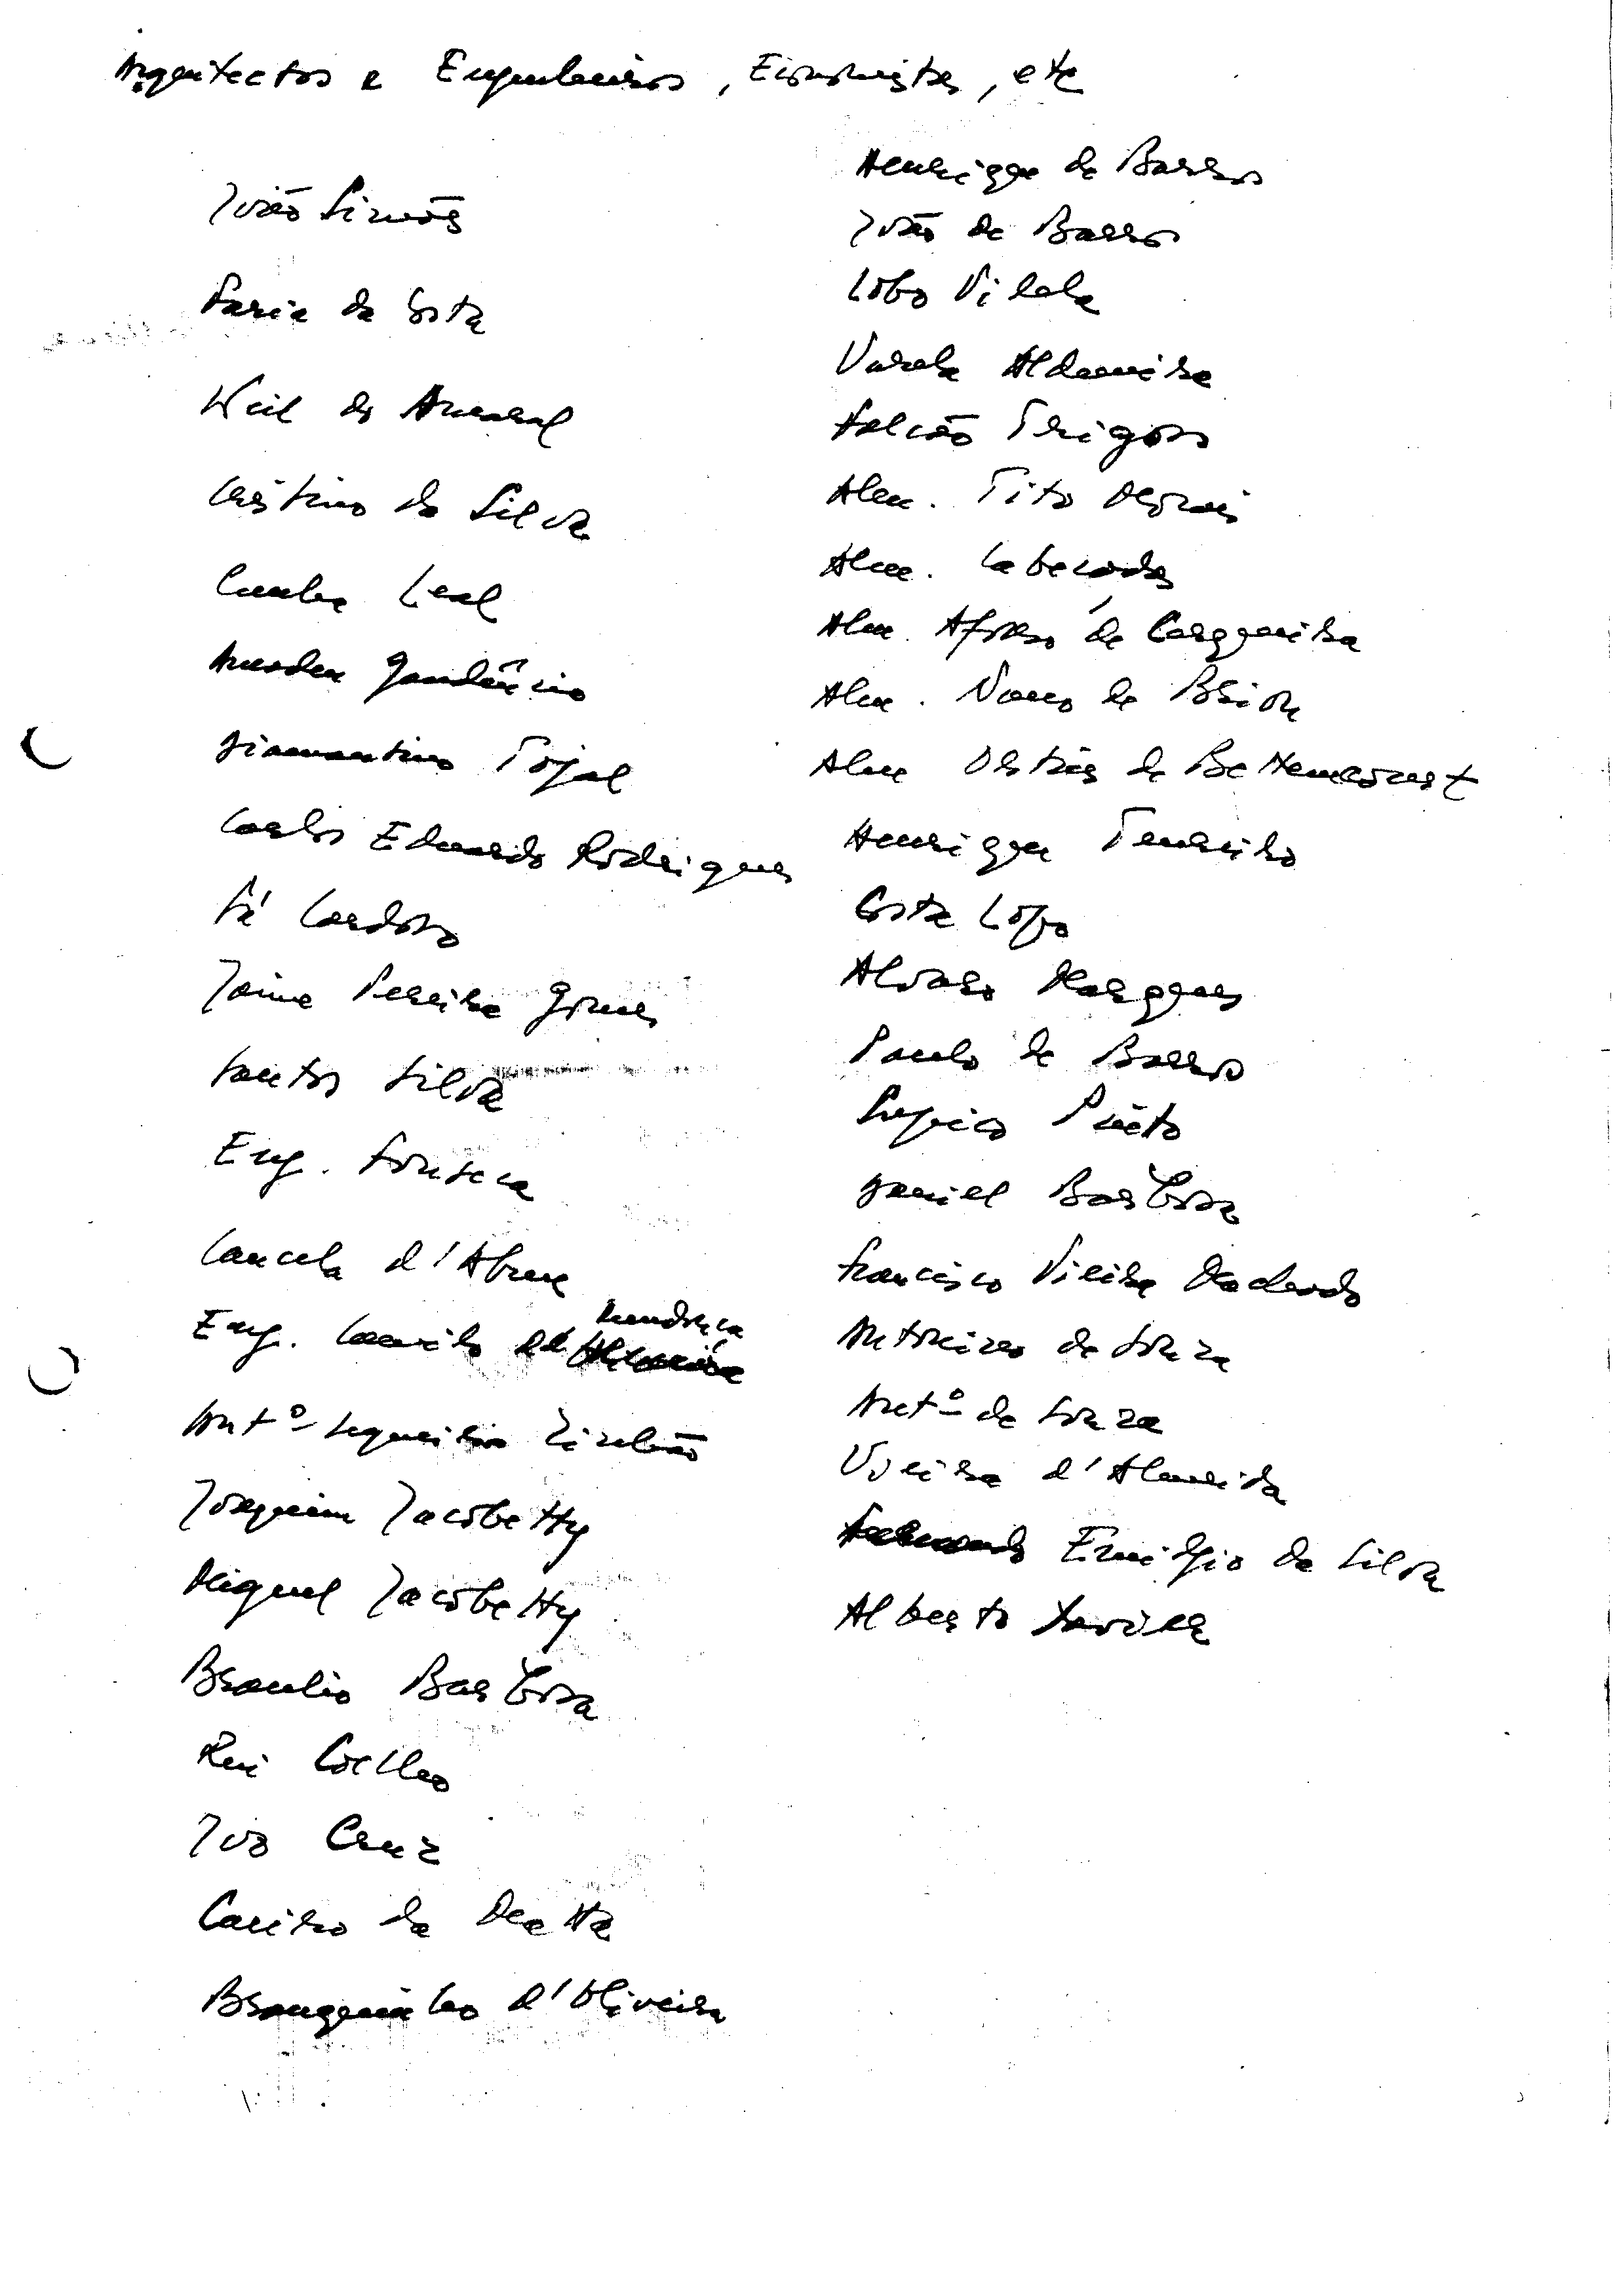 Arquitectos e Engenheiros, Economistas, etc
João Simões
Faria da Costa
Keil do Amaral
Cristino da Silva
Cunha Leal
Amadeu Gaudêncio
Diamantino Tojal
Carlos Eduardo Rodrigues
Sá Cardoso
Jaime Pereira Gomes
Santos Silva
Eng. Fonseca
Cancela d'Abreu
Eng. Camilo de Mendonça
Antº Sequeira Zilhão
Joaquim Jacobetty
Miguel Jacobetty
Braulio Barbosa
Rui Coelho
Ivo Cruz
Caeiro da Matta
Branquinho d'Oliveira
Henrique de Barros
João de Barros
Lobo Vilela
Varela Aldemira
Falcão Trigoso
Alm. Tito Morais
Alm. Cabeçadas
Alm. Afonso de Cerqueira
Alm. Nuno de Brion
Alm Ortins de Bettencourt
Henrique Tenreiro
Costa Lopo
Alvaro Marques
Paulo de Barros
Supico Pinto
Daniel Barbosa
Francisco Vieira Machado
Monteiro de Souza
Antº de Souza
Vieira d'Almeida
Fernando Emidgio da Silva
Alberto Xavier